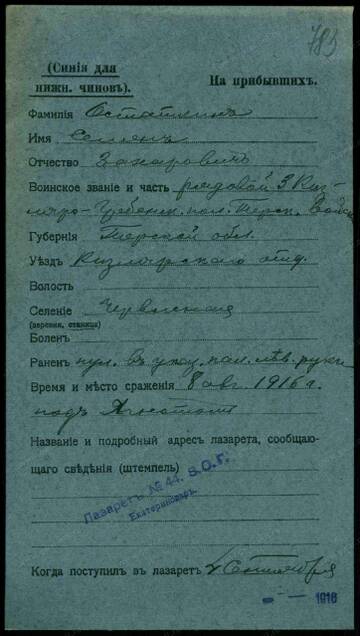 783
(Синія для
нижн. чиновъ).
На прибывшихъ.
Фамилія Остатнинъ
Имя Семенъ
Отчество Захаровичъ
Воинское званіе и часть рядовой 3 Киз-
ляро-Гребенск. пол. Терск. Войск
Губернія Терской обл.
Уѣздъ Кизлярскаго отд.
Волость
Селеніе Червленная
(деревня, станица)
Боленъ
Раненъ пул. въ указ. пал. лѣв. руки
Время и мѣсто сраженія 8 авг. 1916 г.
подъ
Названіе и подробный адресъ лазарета, сообщаю-
щаго свѣдѣнія (штемпель)
Лазаретъ № 44. В.О.Г.
Екатеринодаръ.
Когда поступилъ въ лазаретъ 4 Сентября
1916